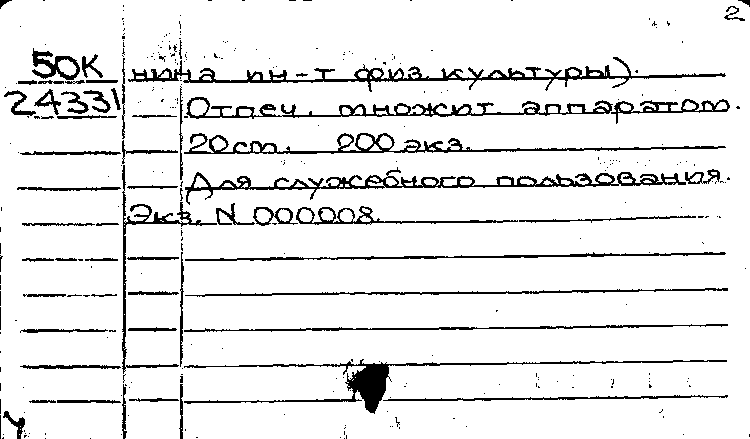 2
50К нина ин-т физ. культуры).
24331 Отпеч. множит. аппаратом.
20 см. 200 экз.
Для служебного пользования.
Экз. N 000008.